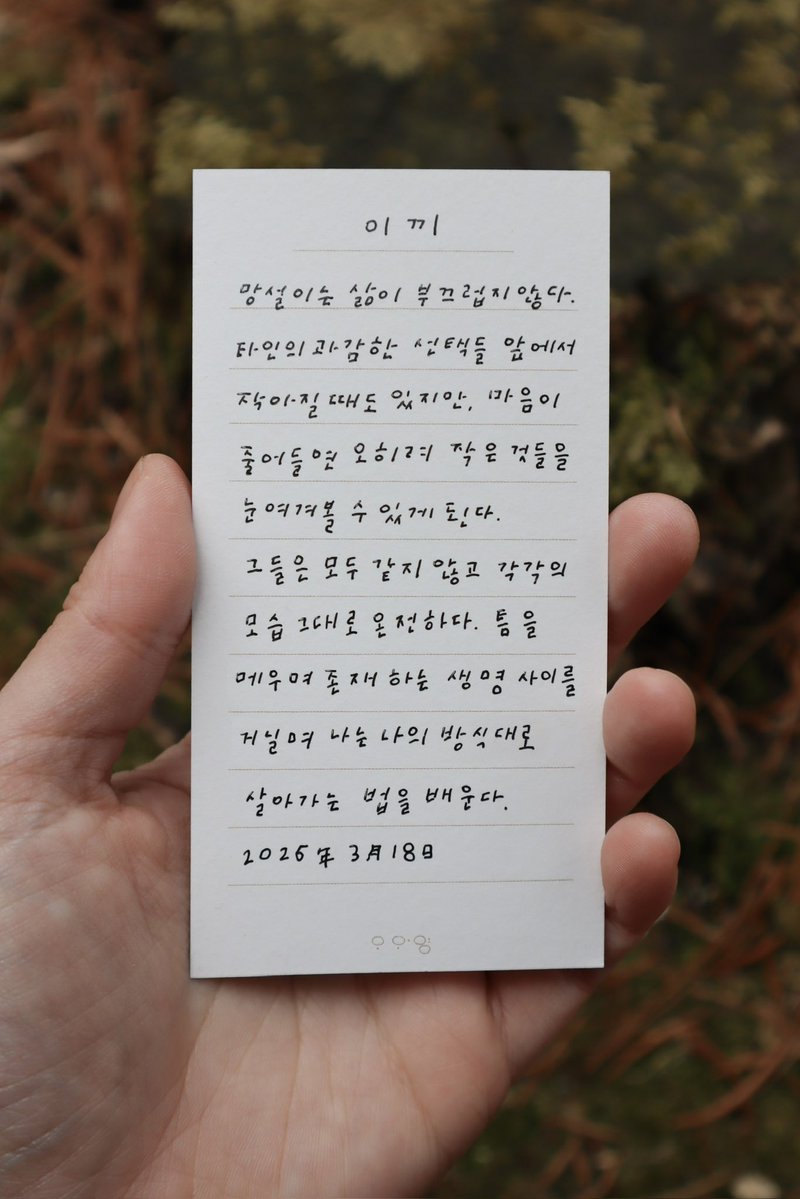 이끼
망설이는 삶이 부끄럽지 않다.
타인의 과감한 선택들 앞에서
작아질 때도 있지만, 마음이
줄어들면 오히려 작은 것들을
눈여겨볼 수 있게 된다.
그들은 모두 같지 않고 각각의
모습 그대로 온전하다. 틈을
메우며 존재하는 생명 사이를
거닐며 나는 나의 방식대로
살아가는 법을 배운다.
2026年 3月 18日